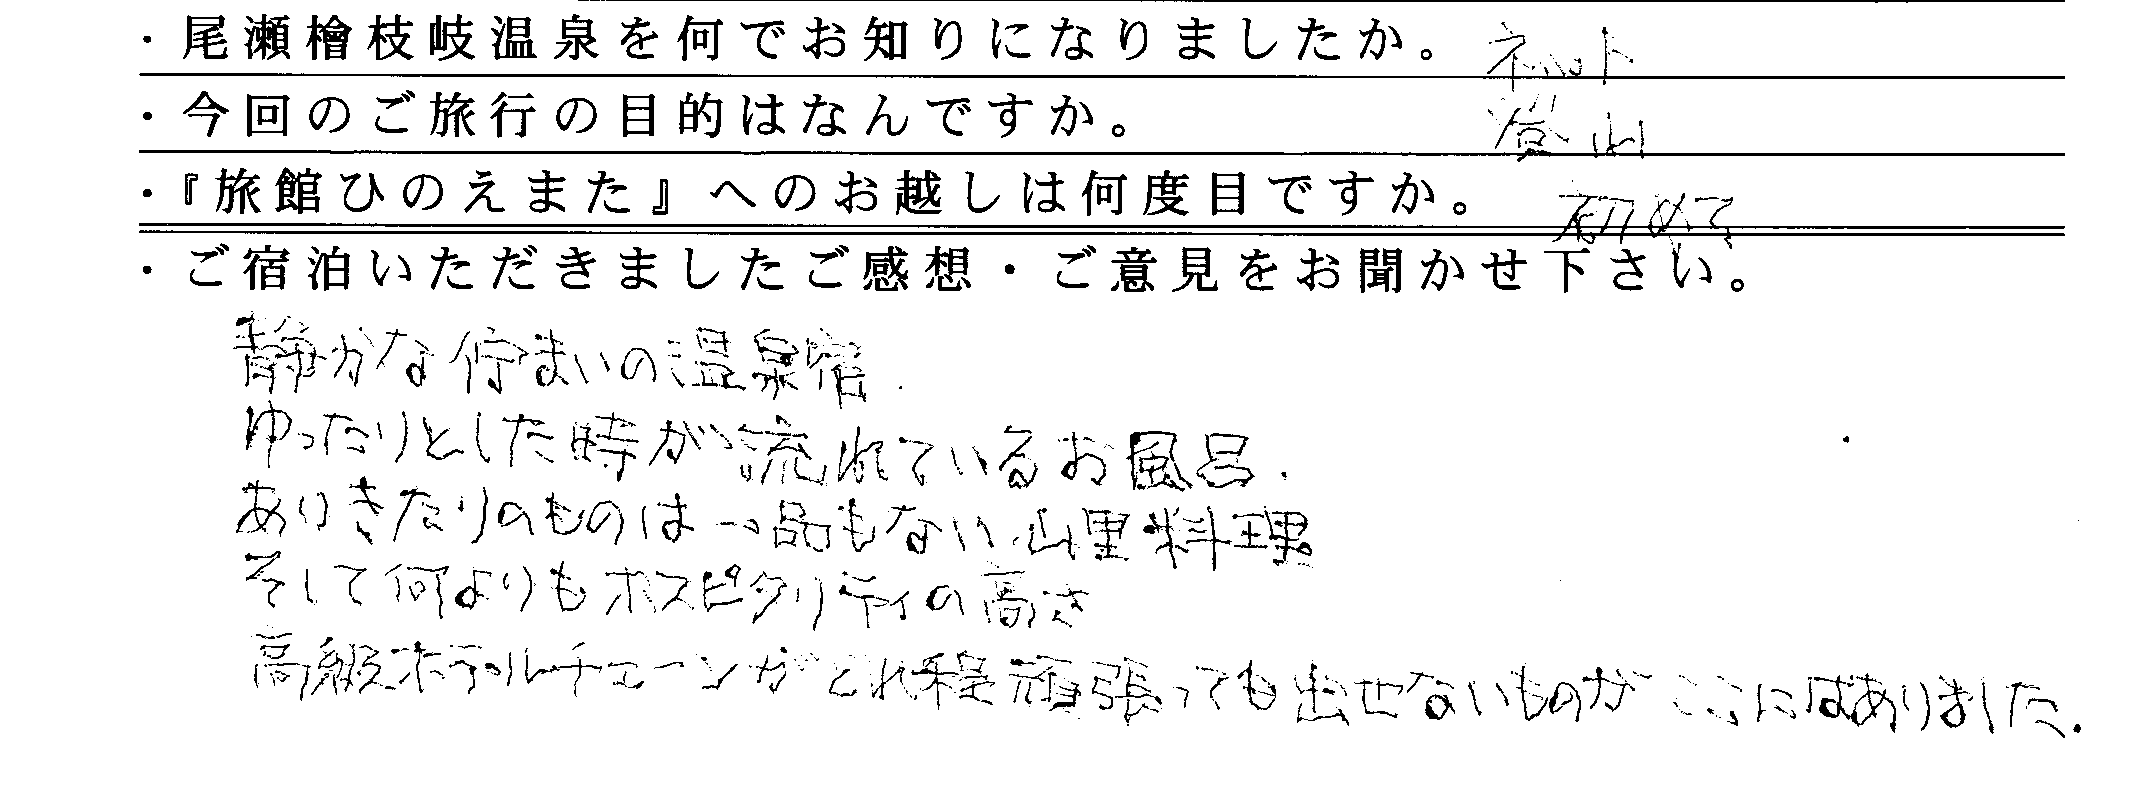 ・尾瀬檜枝岐温泉を何でお知りになりましたか。 ネット
・今回のご旅行の目的はなんですか。 登山
・『旅館ひのえまた』へのお越しは何度目ですか。 初めて
・ご宿泊いただきましたご感想・ご意見をお聞かせ下さい。
静かな佇まいの温泉宿.
ゆったりとした時が流れているお風呂.
ありきたりのものは一品もない山里料理
そして何よりもホスピタリティの高さ
高級ホテルチェーンがどれ程頑張っても出せないものがここにはありました.